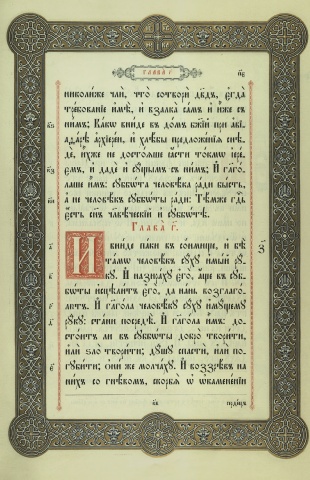 Глава г҃.
николиже чли, что сотвори дв҃дъ, егда
требованіе имѣ, и взалка самъ и иже съ
нимъ; Како вниде въ домъ бж҃ій при авіа-
ѳарѣ архіереи, и хлѣбы предложенія снѣ-
де, ихже не достояше ясти токмо іере-
ємъ, и даде и сущымъ съ нимъ; И гл҃го-
лаше имъ: суббѡта человѣка ради бысть,
а не человѣкъ субботы ради: Тѣмже гдⷭ҇ь
єсть сн҃ъ чл҃вѣческій и субботѣ.
Глава г҃.
И вниде паки въ сонмище, и бѣ
тамѡ человѣкъ суху имый ру-
ку. И назираху єго, аще въ суб-
бѡты исцѣлитъ єго, да нань возглаго-
лютъ. И глагола человѣку суху имущему
руку: стани посредѣ. И глагола имъ: до-
стоитъ ли въ суббѡты добро творити,
или ѕло творити; душу спасти, или по-
губити; они же молчаху. И воззрѣвъ на
нихъ со гнѣвомъ, скорбя ѡ окамененіи